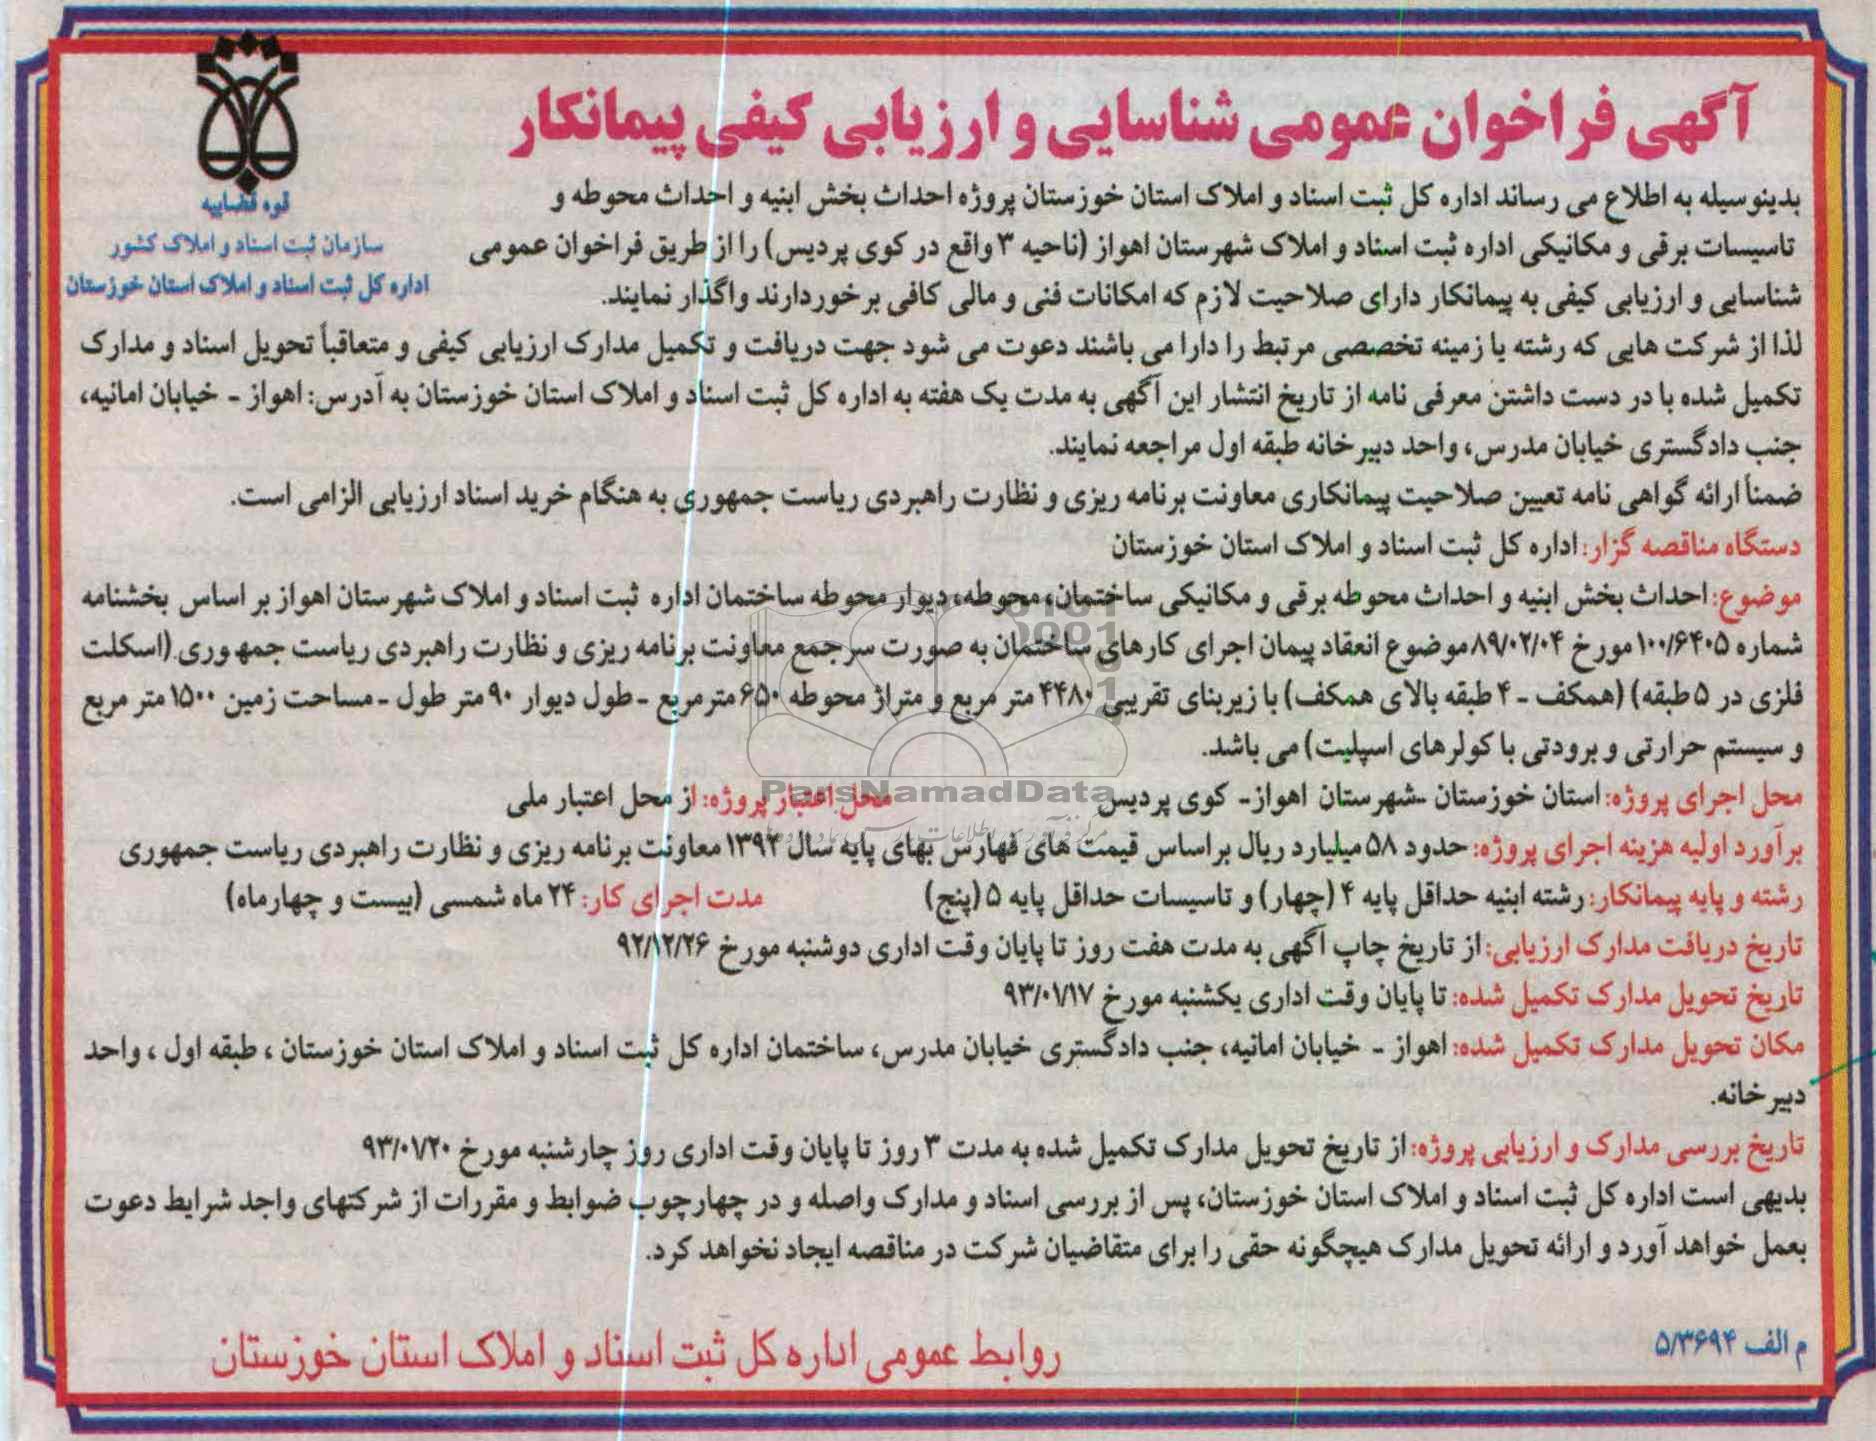 آگهی فراخوان عمومی شناسایی و ارزیابی کیفی پیمانکار
قوه قضاییه
سازمان ثبت اسناد و املاک کشور
اداره کل ثبت اسناد و املاک استان خوزستان
بدینوسیله به اطلاع می رساند اداره کل ثبت اسناد و املاک استان خوزستان پروژه احداث بخش ابنیه و احداث محوطه و
تاسیسات برقی و مکانیکی اداره ثبت اسناد و املاک شهرستان اهواز (ناحیه ۳ واقع در کوی پردیس) را از طریق فراخوان عمومی
شناسایی و ارزیابی کیفی به پیمانکار دارای صلاحیت لازم که امکانات فنی و مالی کافی برخوردارند واگذار نمایند.
لذا از شرکت هایی که رشته یا زمینه تخصصی مرتبط را دارا می باشند دعوت می شود جهت دریافت و تکمیل مدارک ارزیابی کیفی و متعاقباً تحویل اسناد و مدارک
تکمیل شده با در دست داشتن معرفی نامه از تاریخ انتشار این آگهی به مدت یک هفته به اداره کل ثبت اسناد و املاک استان خوزستان به آدرس: اهواز - خیابان امانیه،
جنب دادگستری خیابان مدرس، واحد دبیرخانه طبقه اول مراجعه نمایند.
ضمناً ارائه گواهی نامه تعیین صلاحیت پیمانکاری معاونت برنامه ریزی و نظارت راهبردی ریاست جمهوری به هنگام خرید اسناد ارزیابی الزامی است.
دستگاه مناقصه گزار: اداره کل ثبت اسناد و املاک استان خوزستان
موضوع: احداث بخش ابنیه و احداث محوطه برقی و مکانیکی ساختمان، محوطه، دیوار محوطه ساختمان اداره ثبت اسناد و املاک شهرستان اهواز بر اساس بخشنامه
شماره ۱۰۰/۶۴۰۵ مورخ ۸۹/۰۲/۰۴ موضوع انعقاد پیمان اجرای کارهای ساختمان به صورت سرجمع معاونت برنامه ریزی و نظارت راهبردی ریاست جمهوری (اسکلت
فلزی در ۵ طبقه) (همکف - ۴ طبقه بالای همکف) با زیربنای تقریبی ۴۴۸۰ متر مربع و متراژ محوطه ۶۵۰ مترمربع - طول دیوار ۹۰ متر طول - مساحت زمین ۱۵۰۰ متر مربع
و سیستم حرارتی و برودتی با کولرهای اسپلیت) می باشد.
محل اجرای پروژه: استان خوزستان - شهرستان اهواز - کوی پردیس محل اعتبار پروژه: از محل اعتبار ملی
ParsNamadData
برآورد اولیه هزینه اجرای پروژه: حدود ۵۸ میلیارد ریال براساس قیمت های فهارس بهای پایه سال ۱۳۹۲ معاونت برنامه ریزی و نظارت راهبردی ریاست جمهوری
رشته و پایه پیمانکار: رشته ابنیه حداقل پایه ۴ (چهار) و تاسیسات حداقل پایه ۵ (پنج) مدت اجرای کار: ۲۴ ماه شمسی (بیست و چهارماه)
تاریخ دریافت مدارک ارزیابی: از تاریخ چاپ آگهی به مدت هفت روز تا پایان وقت اداری دوشنبه مورخ ۹۲/۱۲/۲۶
تاریخ تحویل مدارک تکمیل شده: تا پایان وقت اداری یکشنبه مورخ ۹۳/۰۱/۱۷
مکان تحویل مدارک تکمیل شده: اهواز - خیابان امانیه، جنب دادگستری خیابان مدرس، ساختمان اداره کل ثبت اسناد و املاک استان خوزستان ، طبقه اول ، واحد
دبیرخانه.
تاریخ بررسی مدارک و ارزیابی پروژه: از تاریخ تحویل مدارک تکمیل شده به مدت ۳ روز تا پایان وقت اداری روز چارشنبه مورخ ۹۳/۰۱/۲۰
بدیهی است اداره کل ثبت اسناد و املاک استان خوزستان، پس از بررسی اسناد و مدارک واصله و در چهارچوب ضوابط و مقررات از شرکتهای واجد شرایط دعوت
بعمل خواهد آورد و ارائه تحویل مدارک هیچگونه حقی را برای متقاضیان شرکت در مناقصه ایجاد نخواهد کرد.
م الف ۵/۳۶۹۴
روابط عمومی اداره کل ثبت اسناد و املاک استان خوزستان